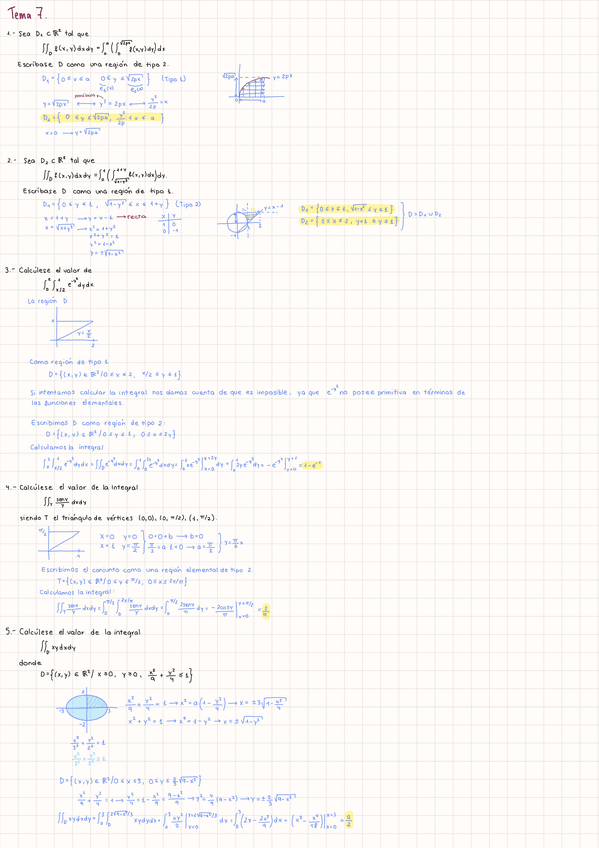 Tema 7.
1.- Sea D₁ ⊂ ℝ² tal que
∬_D f(x,y) dx dy = ∫₀^a (∫₀^√(2px) f(x,y) dy) dx
Escríbase D como una región de tipo 2.
D₁ = { 0 ≤ x ≤ a   0 ≤ y ≤ √(2px) }   (Tipo 1)
√(2pa)   y² = 2px
y = √(2px) ⟷ y² = 2px ⟷ y²/2p = x
D₂ = { 0 ≤ y ≤ √(2pa), y²/2p ≤ x ≤ a }
x=0 → y = √(2pa)
2.- Sea D₂ ⊂ ℝ² tal que
Escríbase D como una región de tipo 1.
D₁ = { 0 ≤ y ≤ 1, √(1-y²) ≤ x ≤ 1+y }   (Tipo 2)
x = 1+y → y = x-1 → recta
y = x-1
D = D₁ ∪ D₂
y² = 1-x²
y = ±√(1-x²)
3.- Calcúlese el valor de
∫₀² ∫_{x/2}^1 e^{-y²} dy dx
La región D
y = x/2
Como región de tipo 1
D = {(x,y) ∈ ℝ² / 0 ≤ x ≤ 2, x/2 ≤ y ≤ 1}
Si intentamos calcular la integral nos damos cuenta de que es imposible, ya que e^{-y²} no posee primitiva en términos de
las funciones elementales.
Escribimos D como región de tipo 2:
D = {(x,y) ∈ ℝ² / 0 ≤ y ≤ 1, 0 ≤ x ≤ 2y}
Calculamos la integral
∫₀² ∫_{x/2}^1 e^{-y²} dy dx = ∬_D e^{-y²} dx dy = ∫₀¹ ∫₀^{2y} e^{-y²} dx dy = ∫₀¹ x e^{-y²} |_{x=0}^{x=2y} dy = ∫₀¹ 2y e^{-y²} dy = -e^{-y²} |_{y=0}^{y=1} = 1 - e^{-1}
4.- Calcúlese el valor de la integral
∬_T sen y / y dx dy
siendo T el triángulo de vértices (0,0), (0, π/2), (1, π/2).
π/2   1
x=0   y=0   0 = 0+b → b=0
x=1   y=π/2   π/2 = a·1+0 → a = π/2   y = π/2 x
Escribimos el conjunto como una región elemental de tipo 2.
T = {(x,y) ∈ ℝ² / 0 ≤ y ≤ π/2, 0 ≤ x ≤ 2y/π}
Calculamos la integral:
∬_T sen y / y dx dy = ∫₀^{π/2} ∫₀^{2y/π} sen y / y dx dy = ∫₀^{π/2} 2 sen y / π dy = - 2 cos y / π | = 2/π
5.- Calcúlese el valor de la integral
∬_D xy dx dy
donde
D = {(x,y) ∈ ℝ² / x ≥ 0, y ≥ 0, x²/9 + y²/4 ≤ 1}
-3   3   -2
x²/9 + y²/4 = 1 → x² = 9(1 - y²/4) → x = ±3√(1 - y²/4)
x² + y² = 1 → x² = 1-y² → x = ±√(1-y²)
x²/3² + y²/2² = 1
D = {(x,y) ∈ ℝ² / 0 ≤ x ≤ 3, 0 ≤ y ≤ 2/3 √(9-x²)}
x²/9 + y²/4 = 1 → y²/4 = 1 - x²/9 = (9-x²)/9 → y² = 4/9 (9-x²) → y = ± 2/3 √(9-x²)
∬_D xy dx dy = ∫₀³ ∫₀^{2√(9-x²)/3} xy dy dx = ∫₀³ xy²/2 |_{y=0}^{y=2√(9-x²)/3} dx = ∫₀³ (2x - 2x³/9) dx = (x² - x⁴/18) |_{x=0}^{x=3} = 9/2